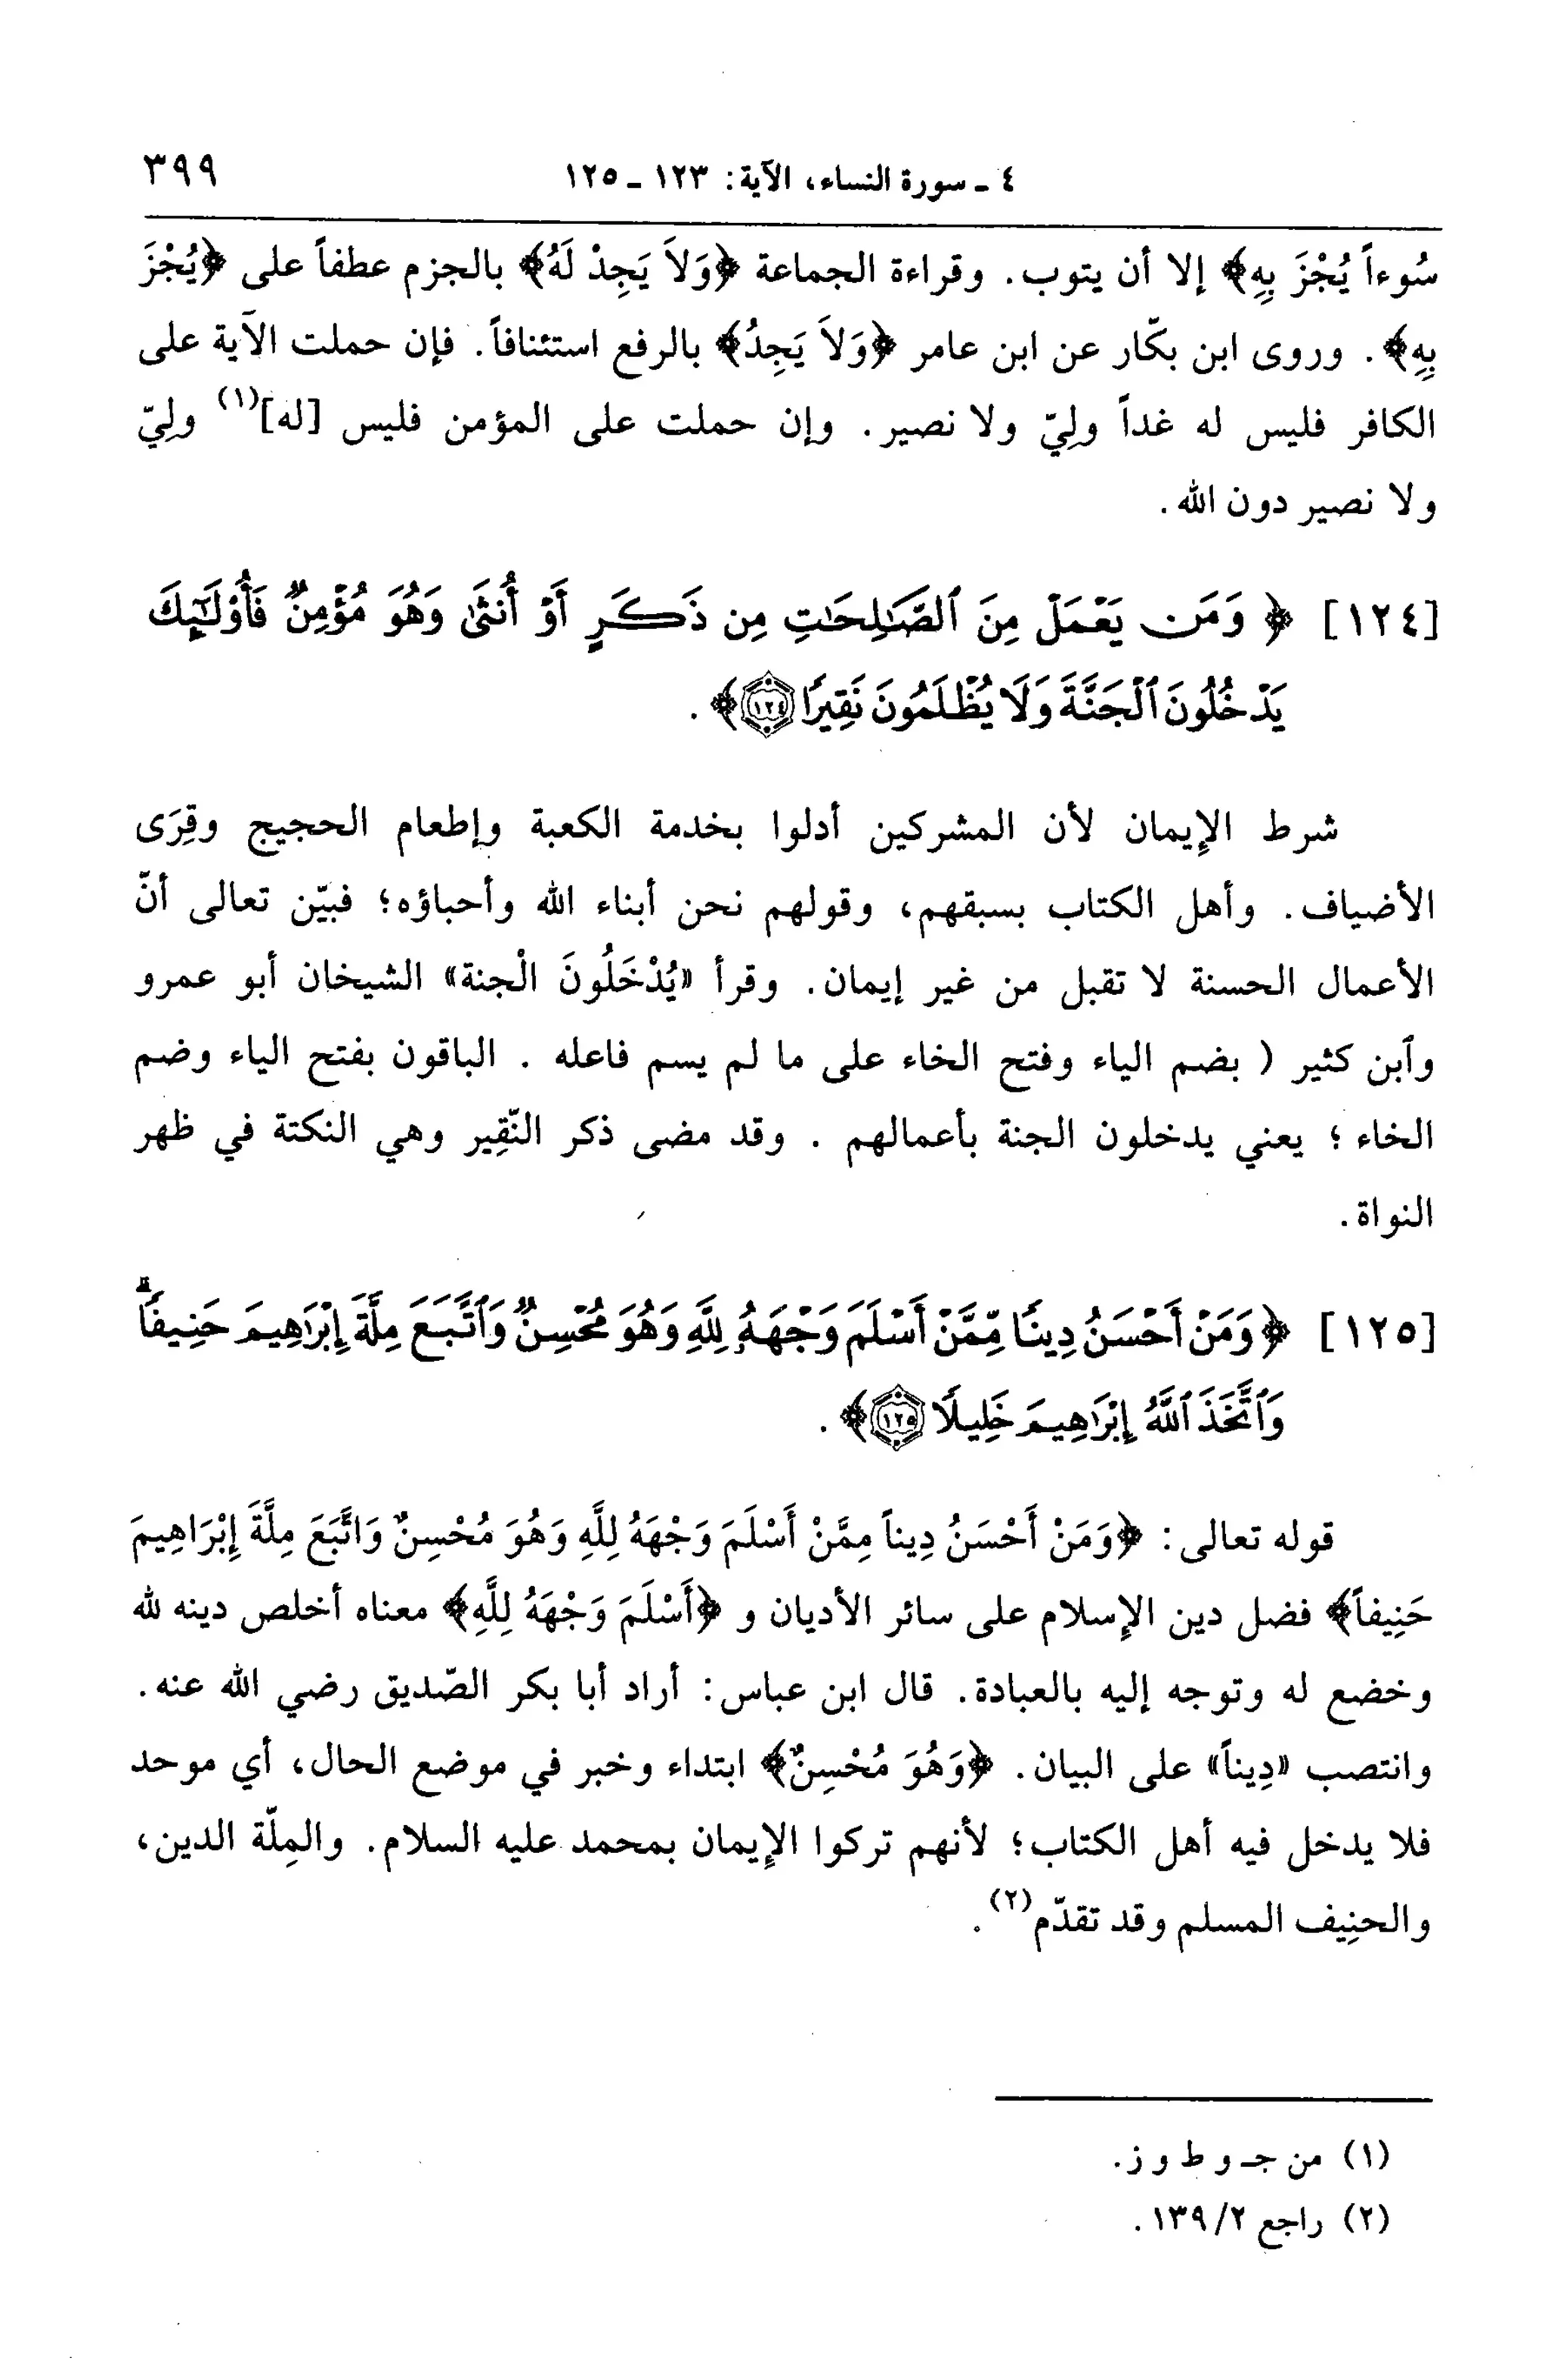 ٤ ـ سورة النساء، الآية: ١٢٣ ـ ١٢٥ ٣٩٩
سُوءاً يُجْزَ بِهِ﴾ إلا أن يتوب. وقراءة الجماعة ﴿وَلاَ يَجِدْ لَهُ﴾ بالجزم عطفاً على ﴿يُجْزَ
بِهِ﴾. وروى ابن بكّار عن ابن عامر ﴿وَلاَ يَجِدُ﴾ بالرفع استئنافاً. فإن حملت الآية على
الكافر فليس له غداً ولِيّ ولا نصير. وإن حملت على المؤمن فليس [له](١) ولِيّ
ولا نصير دون الله.
[١٢٤] ﴿وَمَن يَعْمَلْ مِنَ ٱلصَّٰلِحَٰتِ مِن ذَكَرٍ أَوْ أُنثَىٰ وَهُوَ مُؤْمِنٌ فَأُو۟لَٰٓئِكَ
يَدْخُلُونَ ٱلْجَنَّةَ وَلَا يُظْلَمُونَ نَقِيرًا ١٢٤﴾.
شرط الإيمان لأن المشركين أدلوا بخدمة الكعبة وإطعام الحجيج وقِرَى
الأضياف. وأهل الكتاب بسبقهم، وقولهم نحن أبناء الله وأحباؤه؛ فبيّن تعالى أنّ
الأعمال الحسنة لا تقبل من غير إيمان. وقرأ «يُدْخَلُونَ الْجنة» الشيخان أبو عمرو
وٱبن كثير ( بضم الياء وفتح الخاء على ما لم يسم فاعله . الباقون بفتح الياء وضم
الخاء ؛ يعني يدخلون الجنة بأعمالهم . وقد مضى ذكر النّقِير وهي النكتة في ظهر
النواة.
[١٢٥] ﴿وَمَنْ أَحْسَنُ دِينًا مِّمَّنْ أَسْلَمَ وَجْهَهُۥ لِلَّهِ وَهُوَ مُحْسِنٌ وَٱتَّبَعَ مِلَّةَ إِبْرَٰهِيمَ حَنِيفًا ۗ
وَٱتَّخَذَ ٱللَّهُ إِبْرَٰهِيمَ خَلِيلًا ١٢٥﴾.
قوله تعالى: ﴿وَمَنْ أَحْسَنُ دِيناً مِمَّنْ أَسْلَمَ وَجْهَهُ لِلَّهِ وَهُوَ مُحْسِنٌ وَاتَّبَعَ مِلَّةَ إِبْرَاهِيمَ
حَنِيفاً﴾ فضل دين الإسلام على سائر الأديان و ﴿أَسْلَمَ وَجْهَهُ لِلَّهِ﴾ معناه أخلص دينه لله
وخضع له وتوجه إليه بالعبادة. قال ابن عباس: أراد أبا بكر الصّديق رضي الله عنه.
وانتصب «دِيناً» على البيان. ﴿وَهُوَ مُحْسِنٌ﴾ ابتداء وخبر في موضع الحال، أي موحد
فلا يدخل فيه أهل الكتاب؛ لأنهم تركوا الإيمان بمحمد عليه السلام. والمِلّة الدين،
والحنِيف المسلم وقد تقدّم(٢).
(١) من جـ و ط و ز.
(٢) راجع ٢/ ١٣٩.